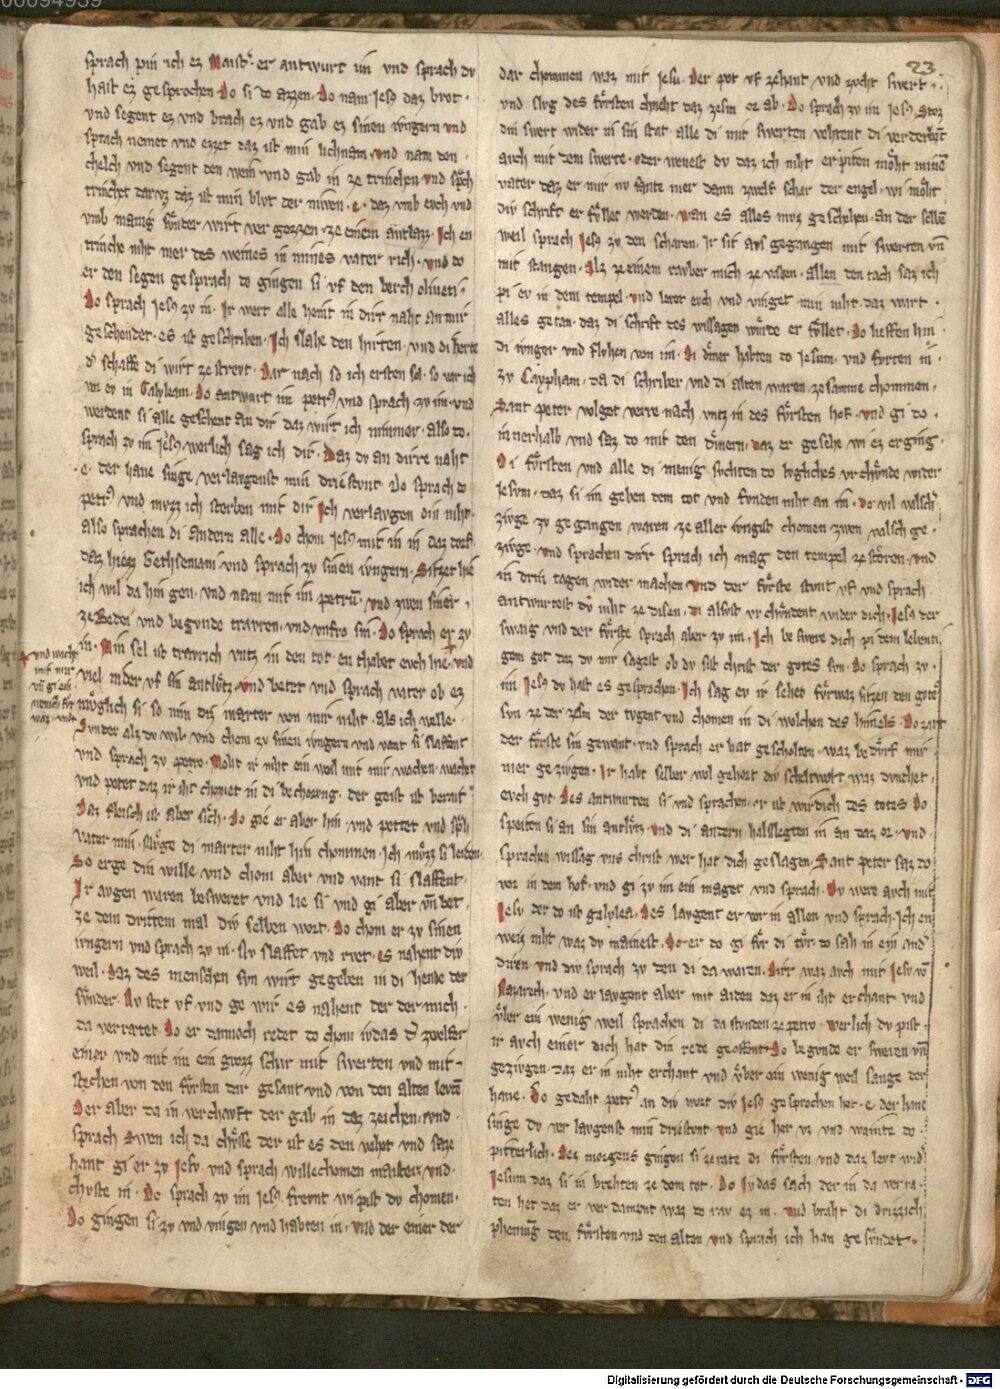 00094939
23
sprach pin ich ez Maist er antwurt im vnd sprach dv
hast ez gesprochen Do si do azzen Do nam Jesus daz brot
vnd segent ez vnd brach ez vnd gab ez sinen iungern vnd
sprach nemet vnd ezzet daz ist min lichnam vnd nam den
chelch vnd segent den wein vnd gab in ze trinchen vnd sprach
trinchet dar vz daz ist min blvt der niwen e daz vmb euch vnd
vmb manig svnder wirt vergozzen ze einem antlazz Ich en
trinche niht mer des weines in mines vater rich vnd do
er den segen gesprach do gingen si vf den berch oliueti
Do sprach Jesus zv in Ir wert alle heint in dirr naht an mir
geschendet es ist geschriben Ich slahe den hirten vnd di herte
der schaffe di wirt zestrevt Dar nach so ich ersten sol so var ich
vor ev in Galyleam Do antwurt im petrus vnd sprach zv im vnd
werdent si alle geschent an dir daz wirt ich nimmer also do
sprach zv im Jesus werlich sag ich dir Daz dv an dirre naht
e der hane singe verlavgenst min driestvnt Do sprach do
petrus vnd mvzz ich sterben mit dir Ich verlavgen din niht
also sprachen di andern alle Do chom Jesus mit in in daz dorf
daz hiezz Gethsemani vnd sprach zv sinen iungern Sitzet hie
ich wil da hin gen vnd nam mit im petrum vnd zwen siner
zebedei vnd begvnde travren vnd vnfro sin Do sprach er zv
in Min sel ist travrich vntz in den tot en thabet euch hie vnd
viel nider vf sin antlvtz vnd betet vnd sprach vater ob ez
mvglich si so nim diz marter von mir niht als ich welle
Svnder als dv wil vnd chom zv sinen iungern vnd vant si slaffent
vnd sprach zv petro Moht ir niht ein weil mit mir wachen wachet
vnd petet daz ir iht chomet in di bechorvng der geist ist bereit
Daz fleisch ist aber sich Do gie er aber hin vnd pettet vnd sprach
vater min mvge di marter niht hin chommen Ich mvzz si leiden
So erge din wille vnd chom aber vnd vant si slaffent
Ir avgen waren besweret vnd lie si vnd gi aber vnd bet
ze dem drittem mal div selben wort Do chom er zv sinen
iungern vnd sprach zv in Nv slaffet vnd rvet es nahent div
weil Daz des menschen svn wirt gegeben in di hende der
svnder Nv stet vf vnd ge wir es nahent der der mich
da verratet Do er dannoch redet do chom ivdas der zwelfer
einer vnd mit im ein grozz schar mit swerten vnd mit
stechen von den fvrsten dar gesant vnd von den alten levten
Der aber da in verchavft der gab in daz zeichen vnd
sprach Swen ich da chvsse der ist es den vahet vnd sa ze
hant gi er zv Jesv vnd sprach willechomen maister vnd
chvste in Do sprach zv im Jesus frevnt wi pist dv chomen
Do gingen si zv vnd vingen vnd habten in vnd der einer der
vnd wachet
mit mir
vnd gi ein
wenich fur
dar chommen waz mit Jesu Der pot vf zehant vnd zvcht swert
vnd slvg des fvrsten chneht daz zesm or ab Do sprach zv im Jesus Stoz
din swert wider in sin stat alle di mit swerten vehtent di verderbent
avch mit dem swerte oder wenest dv daz ich niht erpiten moht minen
vater daz er mir nv sante mer dann zwelf schar der engel wi moht
div schrift erfvllet werden wan es alles mvz geschehen an der selben
weil sprach Jesus zv den scharen Ir sit avs gegangen mit swerten vnd
mit stangen Alz ze einem rauber mich ze vahen allen den tach saz ich
pi ev in dem tempel vnd leret euch vnd vinget min niht daz wart
alles getan daz di schrift des wissagen wurde erfvllet Do lieffen hin
di ivnger vnd flvhen von im Di diner habten do Jesum vnd fvrten in
zv Caypham da di schriber vnd di alten waren zesamme chommen
Sant peter volget verre nach vntz in des fvrsten hof vnd gi do
innerhalb vnd saz do mit den dinern daz er gesehe wi ez erging
Di fvrsten vnd alle di menig svchten do lvgliches vrchvnde wider
Jesum daz si im geben dem tot vnd fvnden niht an im Do vil valscher
zivge zv gegangen waren ze aller ivngist chomen zwen valsch ge
zivge vnd sprachen dirr sprach ich mag den tempel zestoren vnd
in drin tagen wider machen vnd der fvrste stvnt vf vnd sprach
antwurtest dv niht ze disen di alsust vrchvndent wider dich Jesus der
swaig vnd der fvrste sprach aber zv im Ich beswere dich pi dem lebenti
gem got daz dv mir sagest ob dv sist christ der gotes svn Do sprach zv
im Jesus dv hast es gesprochen Ich sag ev ir sehet fvrwaz sitzen den gotes
svn ze der zesm der tvgent vnd chomen in di wolchen des himels Do zart
der fvrste sin gewant vnd sprach er hat gescholten waz bedvrf wir
mer gezivgen Ir habt selber wol gehort div scheltwort waz dvnchet
euch gvt Des antwurten si vnd sprachen er ist wirdich des todes Do
speiten si an sin antlvtz vnd di andern halsslegten in an daz or vnd
sprachen wissag vns christ wer hat dich geslagen Sant peter saz do
vor in dem hof vnd gi zv im ein maget vnd sprach Dv were avch mit
Jesv der do ist galylea Des lavgent er vor in allen vnd sprach Ich en
weiz niht waz dv mainest Do er do gi fvr di tvr do sah in ein ander
diren vnd div sprach zv den di da waren Dirr waz avch mit Jesv von
Nazareth vnd er lavgent aber mit aiden daz er in iht erchant vnd
vber ein wenig weil sprachen di da stvnden ze petro werlich dv pist
ir avch einer dich hat din rede geoffent Do begvnde er sweren vnd
gezivgen daz er in niht erchant vnd vber ein wenig weil sange der
hane Do gedaht petrus an div wort div Jesus gesprochen het e der hane
singe dv verlavgenst min driestvnt vnd gie her vz vnd wainte do
pitterlich Des morgens gingen si ze rate di fvrsten vnd daz levt vnd
Jesum daz si in brehten ze dem tot Do Ivdas sach der in da verra
ten het daz er verdament waz do rav ez in vnd braht di drizzich
phenning den fvrsten vnd den alten vnd sprach ich han gesvndet
Digitalisierung gefördert durch die Deutsche Forschungsgemeinschaft - DFG